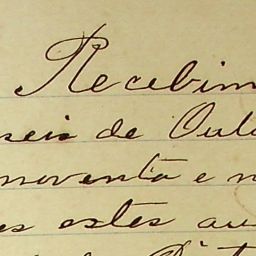 Recebim
seis de Outu
noventa e n
es estes au